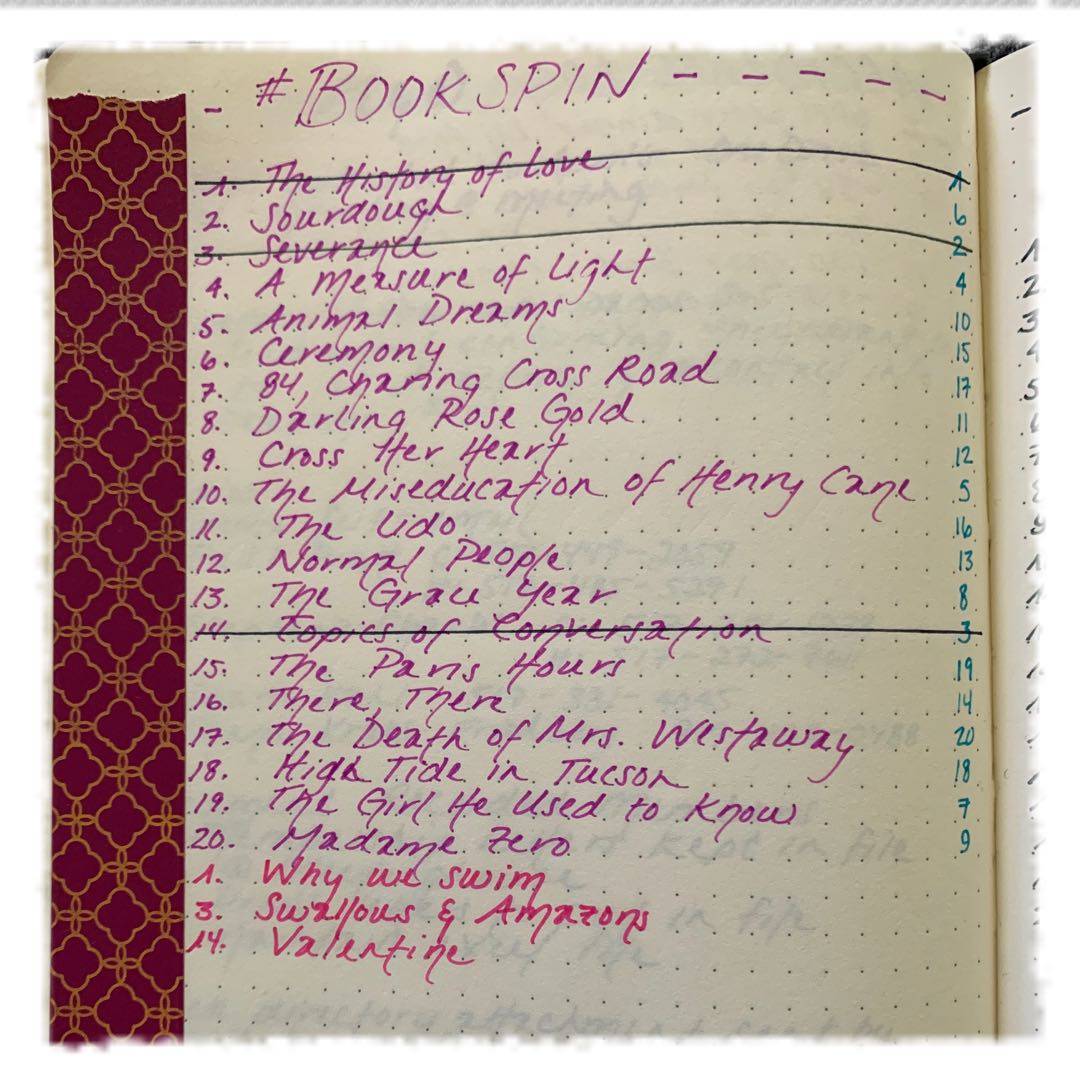 #BOOKSPIN
1. The History of Love 1
2. Sourdough 6
3. Severance 2
4. A Measure of Light 4
5. Animal Dreams 10
6. Ceremony 15
7. 84, Charing Cross Road 17
8. Darling Rose Gold 11
9. Cross Her Heart 12
10. The Miseducation of Henry Cane 5
11. The Lido 16
12. Normal People 13
13. The Grace Year 8
14. Topics of Conversation 3
15. The Paris Hours 19
16. There, There 14
17. The Death of Mrs. Westaway 20
18. High Tide in Tucson 18
19. The Girl He Used to Know 7
20. Madame Zero 9
1. Why we swim
3. Swallows & Amazons
14. Valentine